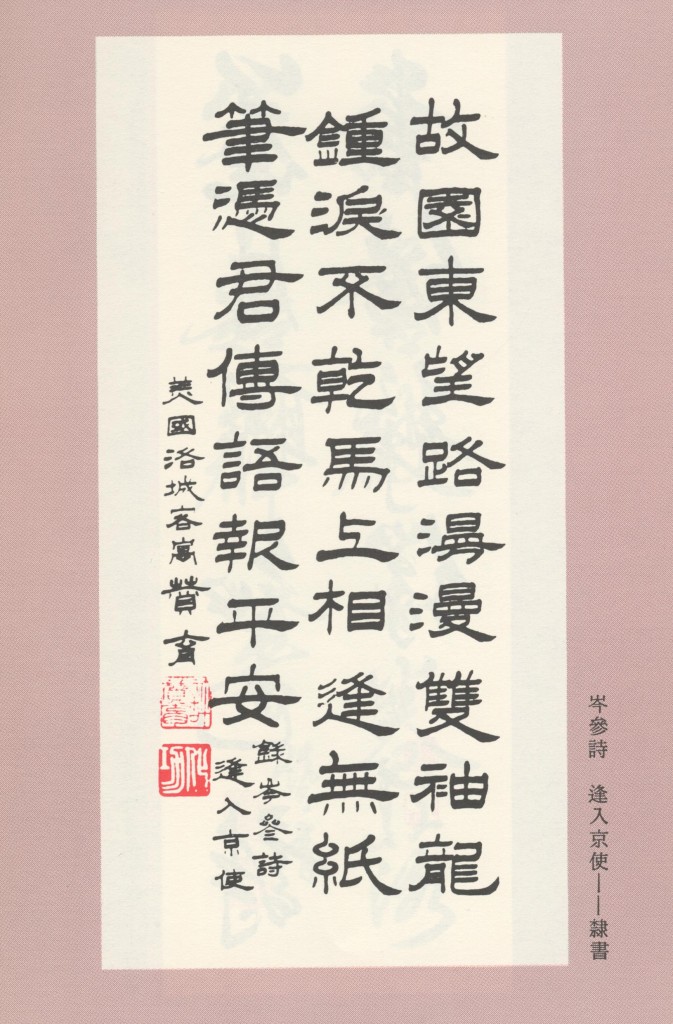 故園東望路漫漫雙袖龍
鍾淚不乾馬上相逢無紙
筆憑君傳語報平安
錄岑參詩
逢入京使
美國洛城客寓育
岑參詩　逢入京使——隸書